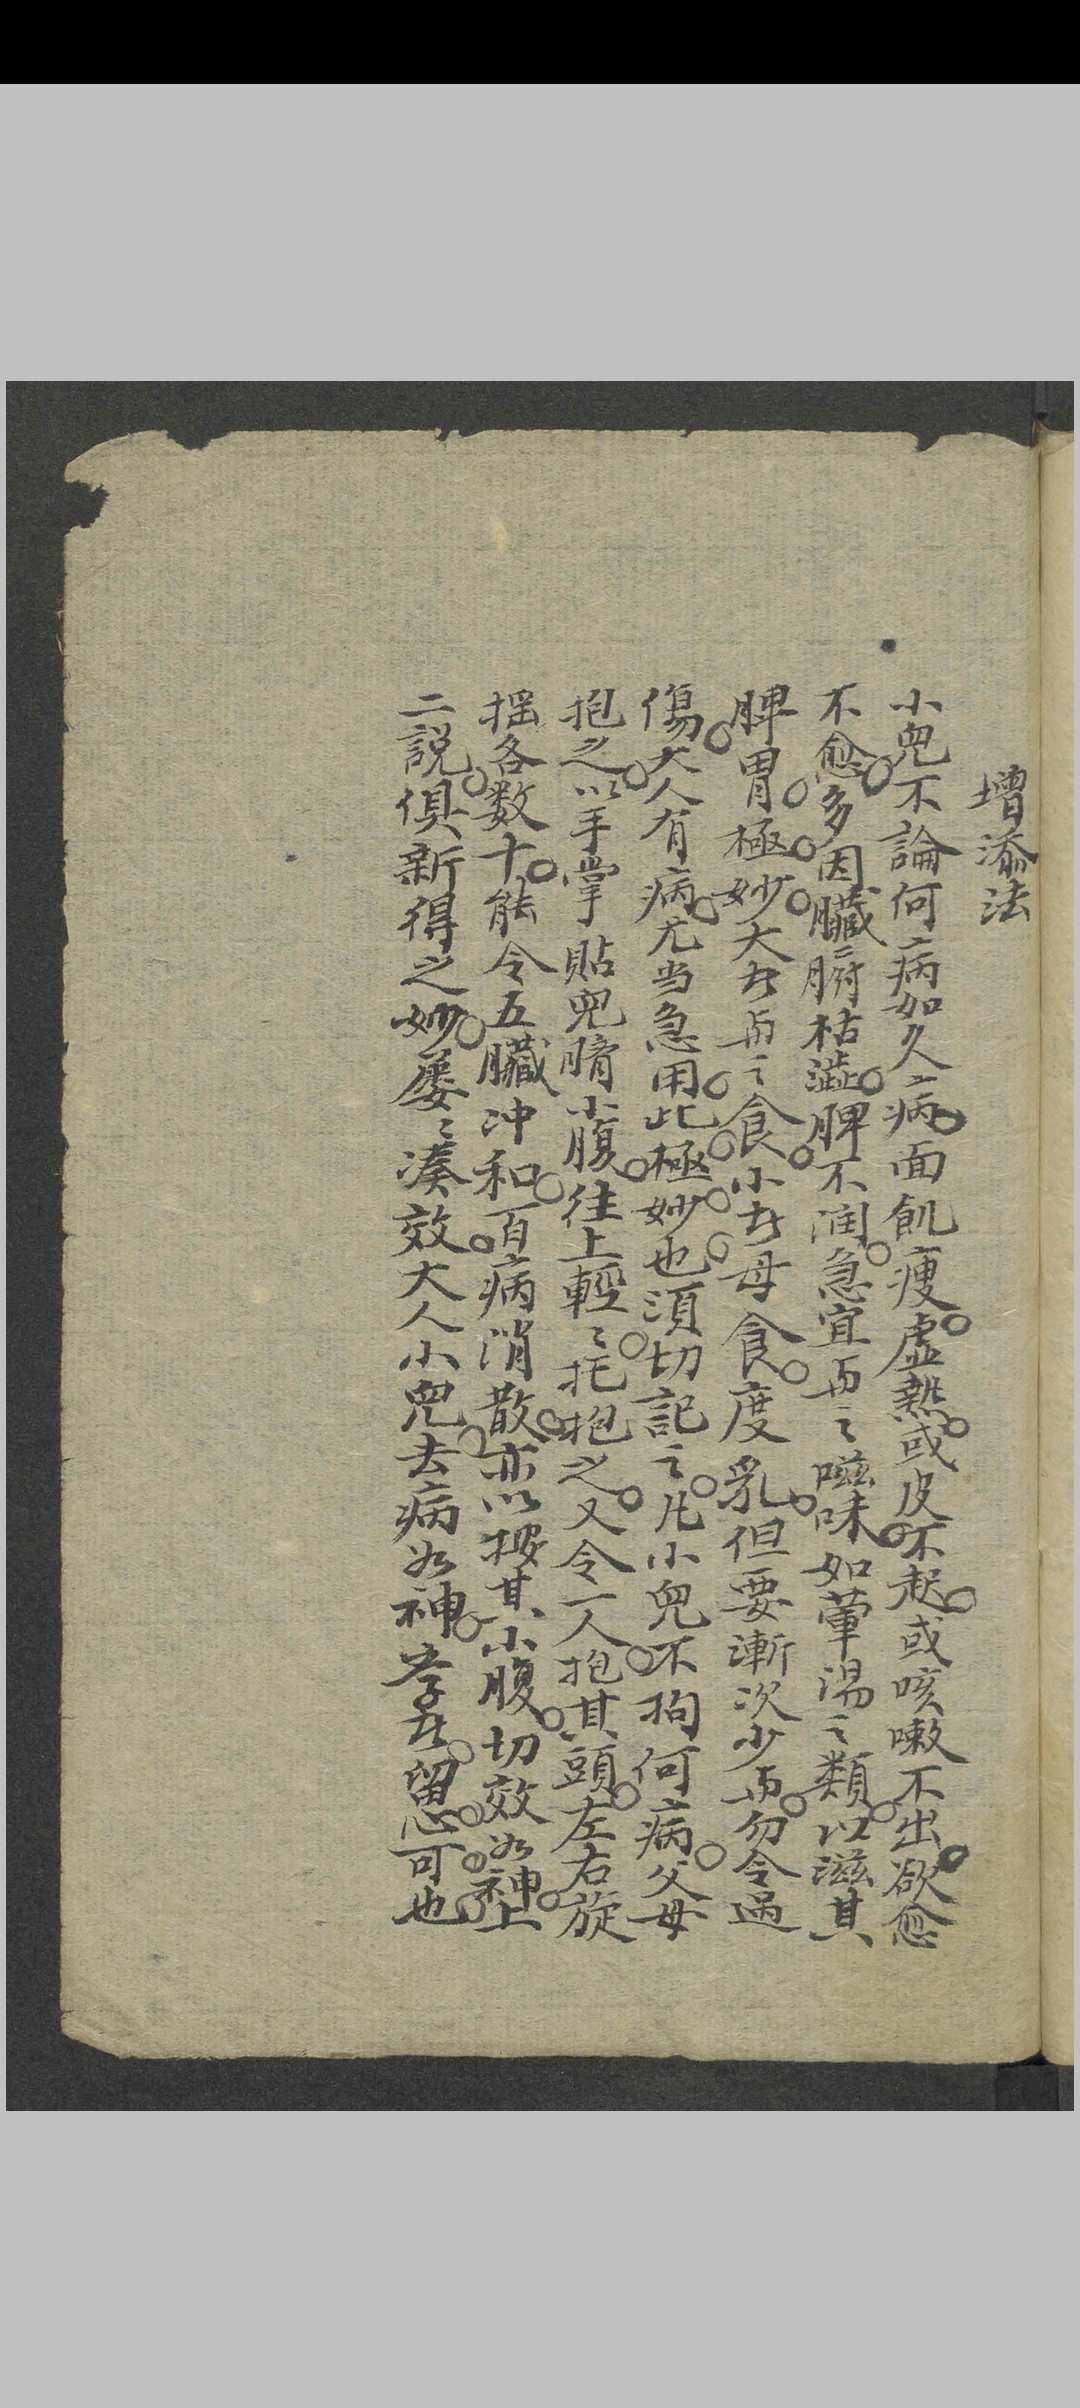 增添法
小兒不論何病如久病面飢瘦虛熱或皮不起或咳嗽不出欲愈
不愈多因臟腑枯澁脾不潤急宜再之滋味如葷湯之類以滋其
脾胃極妙大者与之食小者母食度乳但要漸次少与勿令過
傷大人有病尤当急用此極妙也須切記之凡小兒不拘何病父母
抱之以手掌貼兒臍小腹往上輕〻托抱之又令一人抱其頭左右旋
摇各数十能令五臟冲和百病消散亦以按其小腹切效如神上
二説俱新得之妙屡〻湊效大人小兒去病如神孝者留心可也